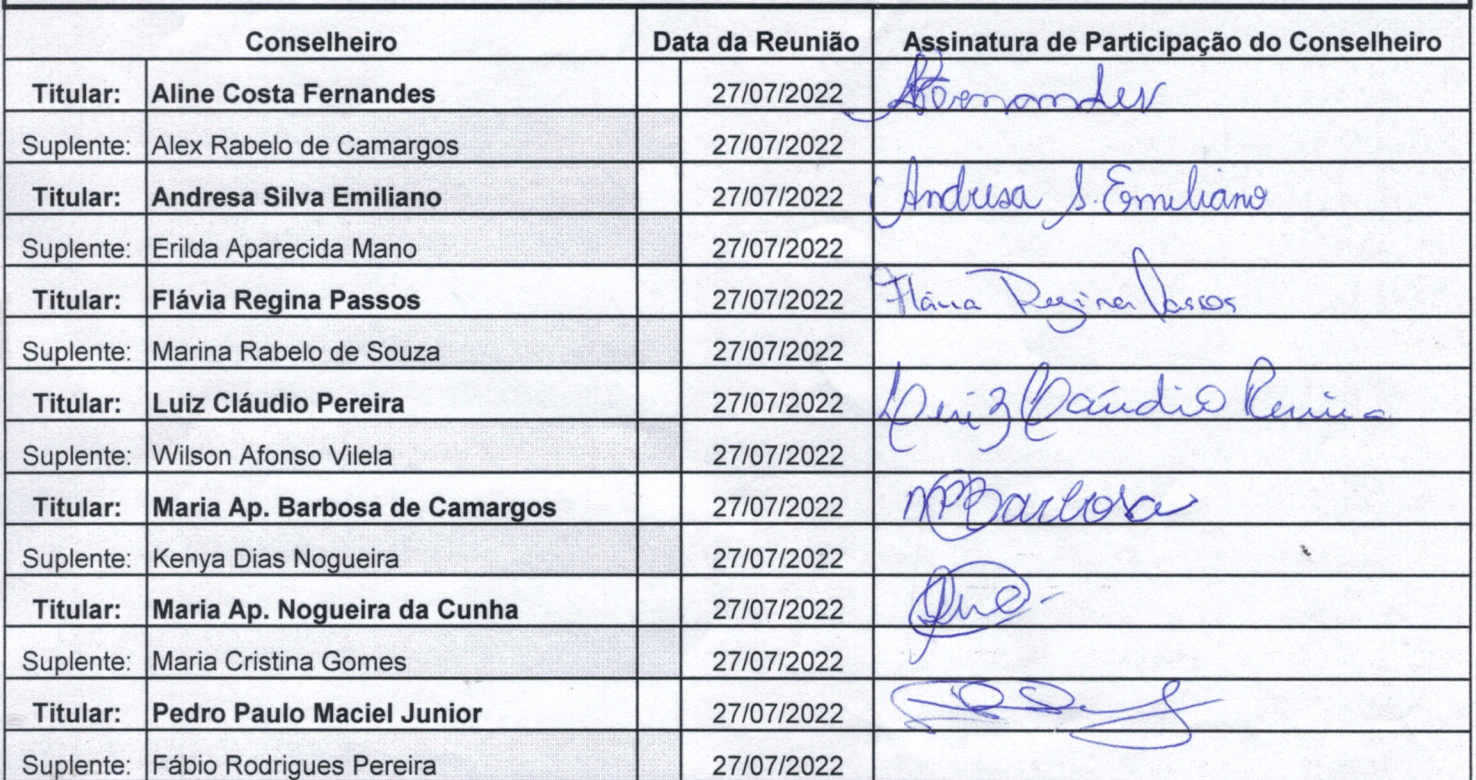 Conselheiro Data da Reunião Assinatura de Participação do Conselheiro
Titular: Aline Costa Fernandes 27/07/2022 AFernandes
Suplente: Alex Rabelo de Camargos 27/07/2022
Titular: Andresa Silva Emiliano 27/07/2022 Andresa S. Emiliano
Suplente: Erilda Aparecida Mano 27/07/2022
Titular: Flávia Regina Passos 27/07/2022 Flávia Regina Passos
Suplente: Marina Rabelo de Souza 27/07/2022
Titular: Luiz Cláudio Pereira 27/07/2022 Luiz Cláudio Pereira
Suplente: Wilson Afonso Vilela 27/07/2022
Titular: Maria Ap. Barbosa de Camargos 27/07/2022 Barbosa
Suplente: Kenya Dias Nogueira 27/07/2022
Titular: Maria Ap. Nogueira da Cunha 27/07/2022
Suplente: Maria Cristina Gomes 27/07/2022
Titular: Pedro Paulo Maciel Junior 27/07/2022
Suplente: Fábio Rodrigues Pereira 27/07/2022